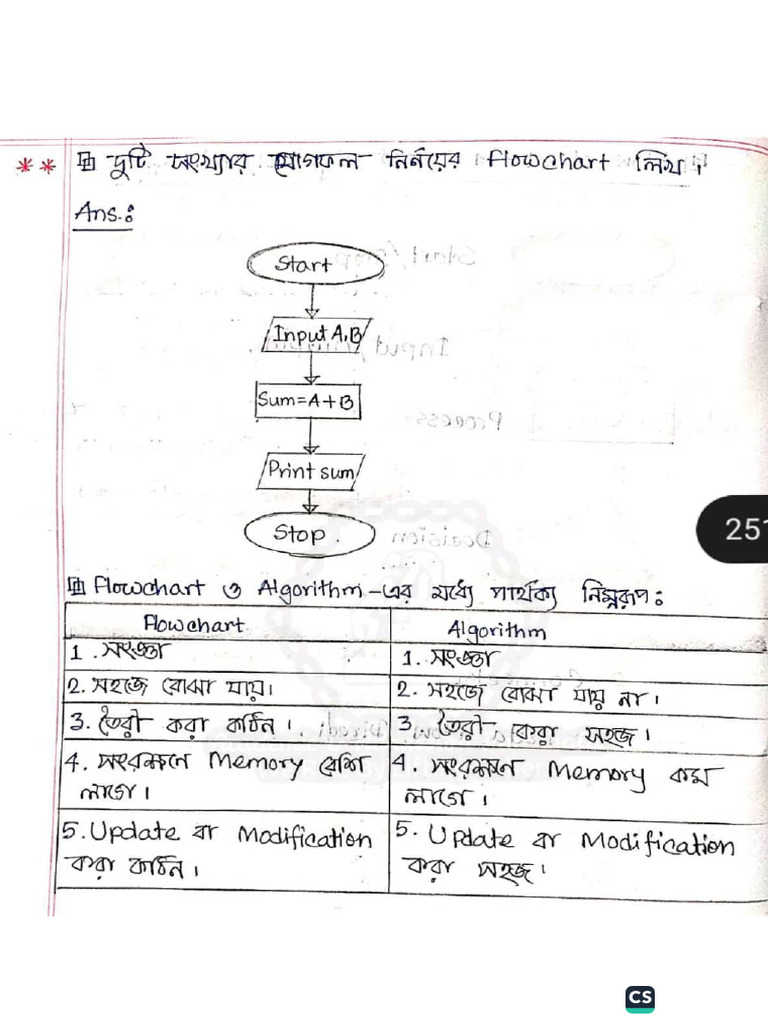 ** দুটি সংখ্যার যোগফল নির্ণয়ের flowchart লিখ।
Ans.:
Start
Input A,B
Sum=A+B
Print sum
Stop.
Flowchart ও Algorithm-এর মধ্যে পার্থক্য নিম্নরূপ:
Flowchart
Algorithm
1. সংজ্ঞা
1. সংজ্ঞা
2. সহজে বোঝা যায়।
2. সহজে বোঝা যায় না।
3. তৈরী করা কঠিন।
3. তৈরী করা সহজ।
4. সংরক্ষণে Memory বেশি
লাগে।
4. সংরক্ষণে Memory কম
লাগে।
5. Update বা Modification
করা কঠিন।
5. Update বা Modification
করা সহজ।
251
CS